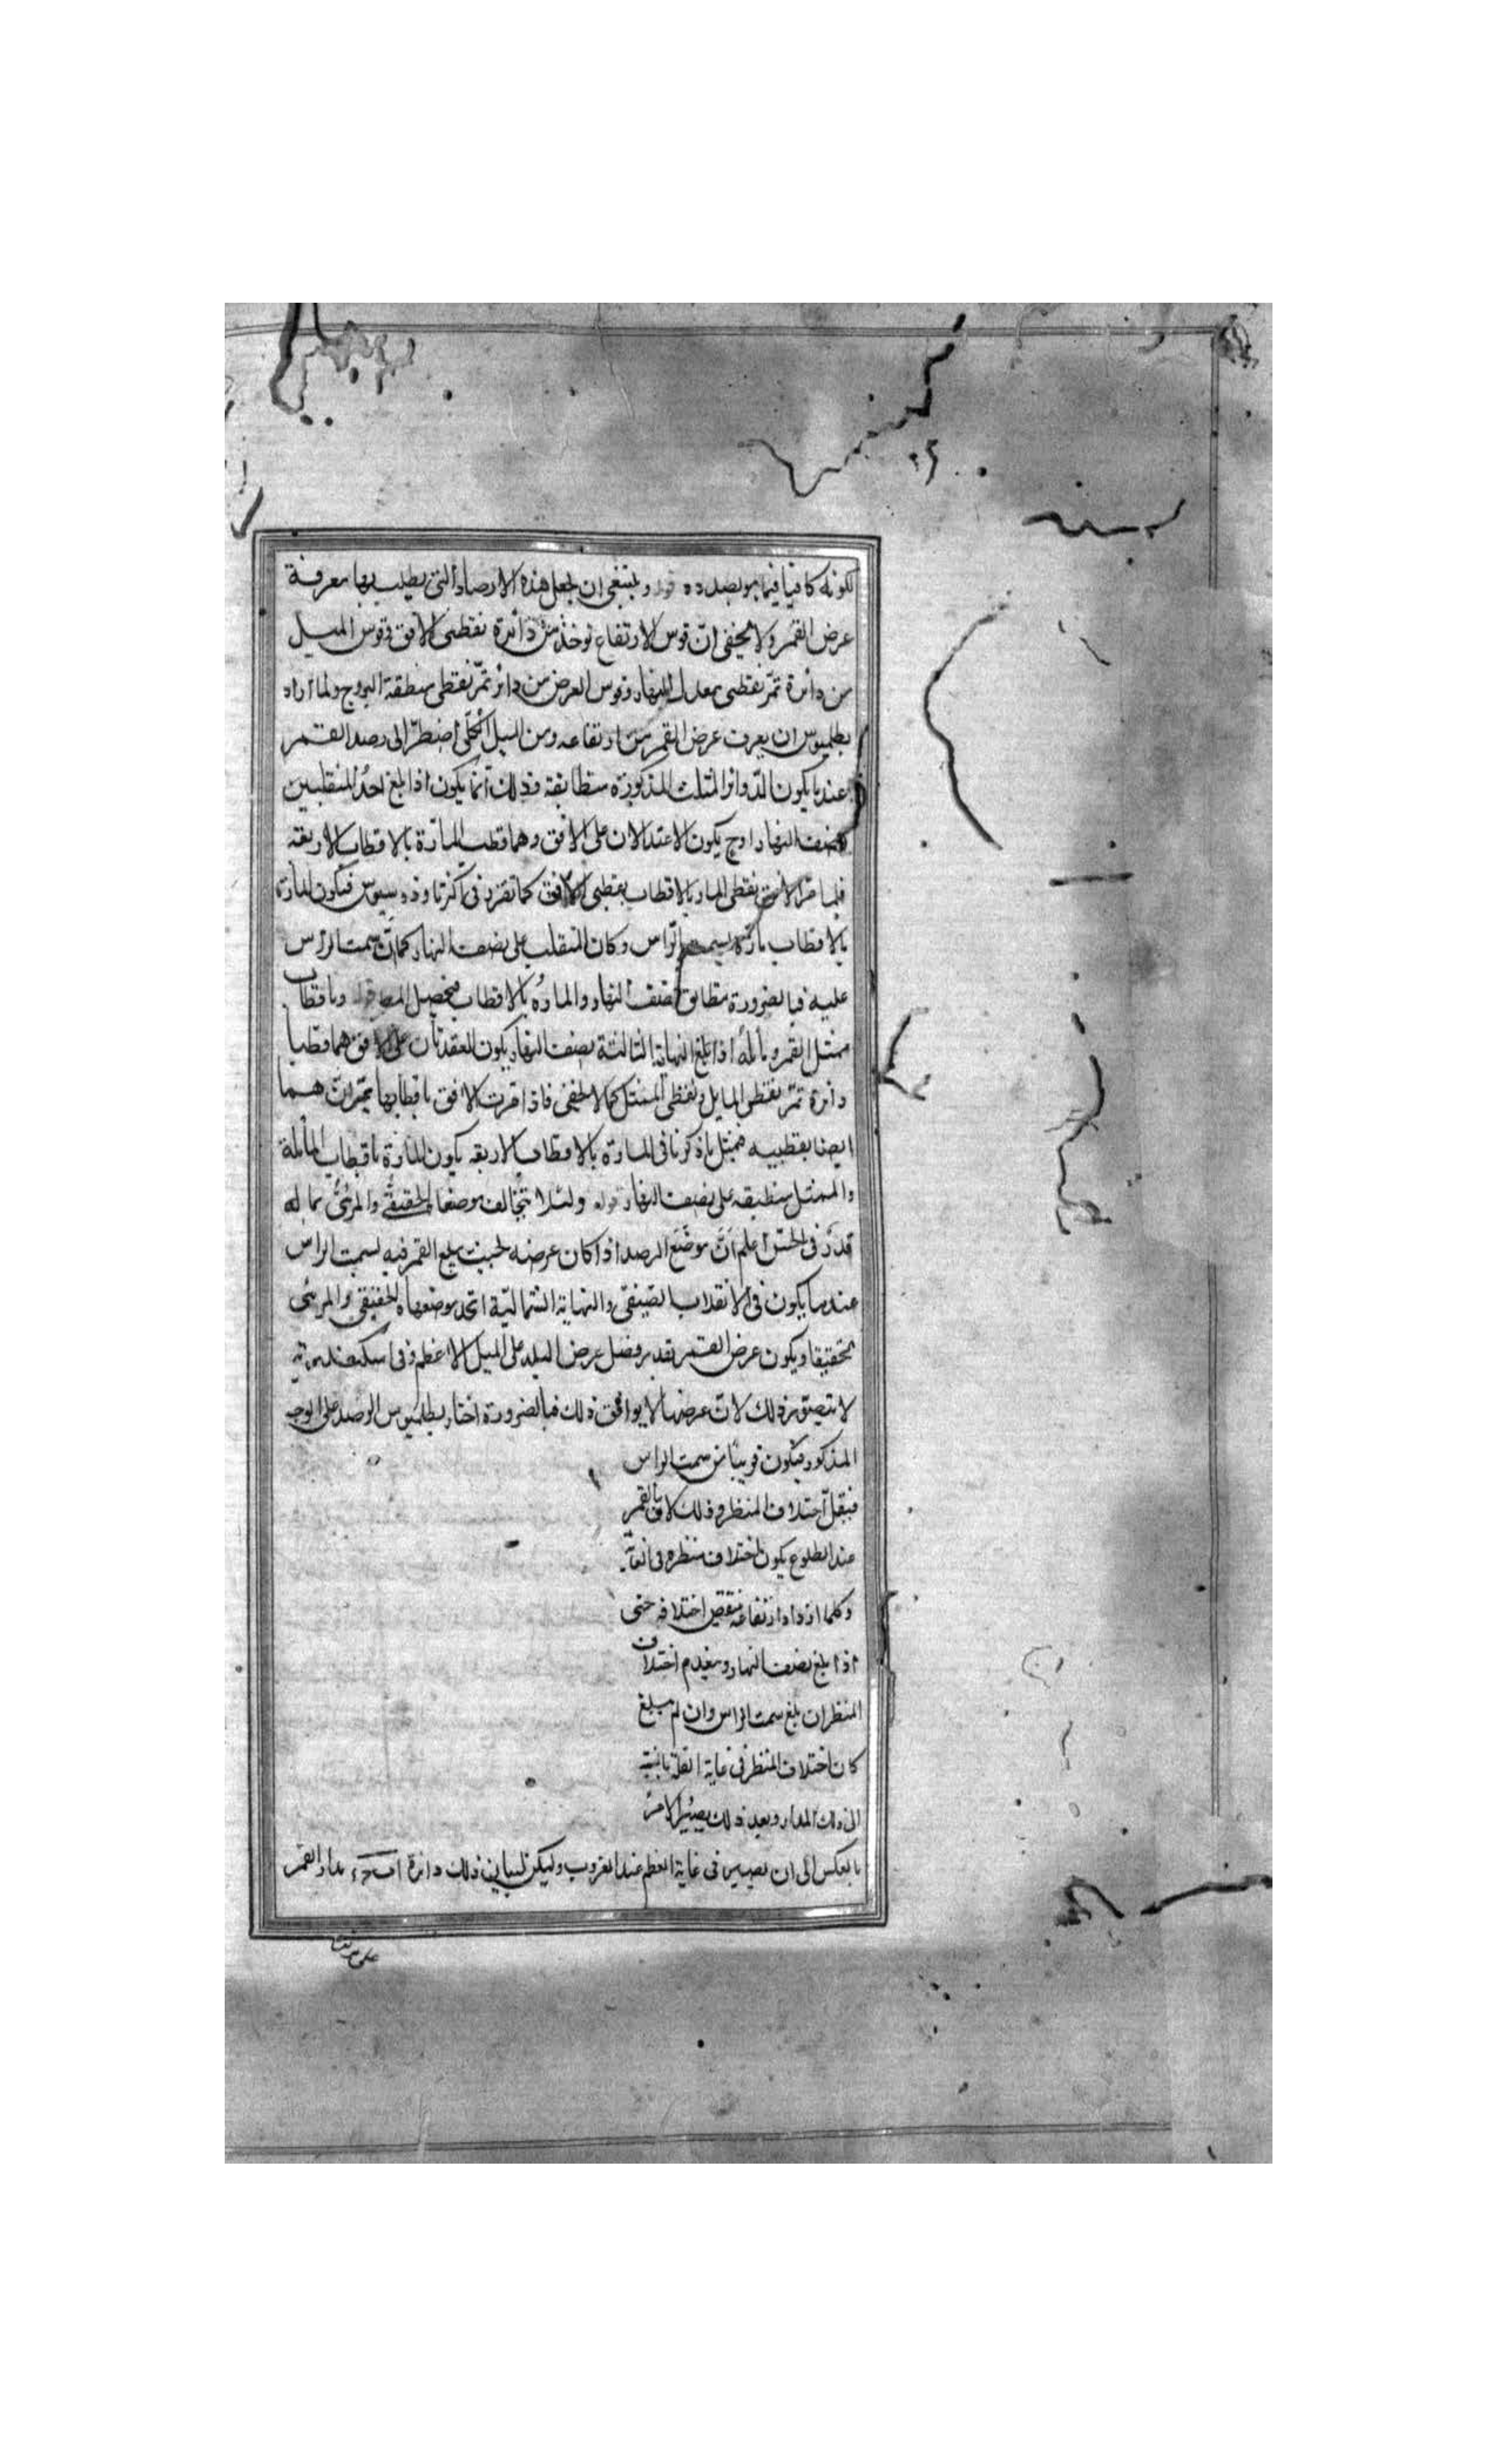 لكونه كافيا فيما هو بصدده قوله وينبغى ان نجعل هذه الارصاد التى يطلب بها معرفة
عرض القمر ولا يخفى ان قوس الارتفاع توخذ من دائرة بقطبى الافق وقوس الميل
من دائرة تمر بقطبى معدل النهار وقوس العرض من دائرة تمر بقطبى منطقة البروج ولما اراد
بطلميوس ان يعرف عرض القمر من ارتفاعه ومن الميل الكلى اضطر الى رصد القمر
عندما يكون الدوائر الثلث المذكورة متطابقة وذلك انما يكون اذا بلغ احد المنقلبين
نصف النهار اذ ح يكون الاعتدالان على الافق وهما قطب المارة بالاقطاب الاربعة
فلما مر الافق بقطبى المارة بالاقطاب بقطبى الافق كما تقرر فى اكرثاوذوسيوس فيكون المارة
بالاقطاب مارة بسمت الراس وكان المنقلب على نصف النهار كما ان سمت الراس
عليه فبالضرورة يتطابق نصف النهار والمارة بالاقطاب فيحصل قوله وباقطاب
ممثل القمر ومائله اذا بلغ النهاية الثالثة نصف النهار يكون العقدتان على الافق هما قطبا
دائرة تمر بقطبى المايل وبقطبى الممثل كما لا يخفى فاذا مرت الافق باقطابها تمران هما
ايضا بقطبيه فبمثل ما ذكرنا فى المارة بالاقطاب الاربعة يكون المارة باقطاب المائلة
والممثل منطبقه على نصف النهار قوله ولئلا يتخالف موضعا الحقيقى والمرئى بما له
قدر فى الحس اعلم ان موضع الرصد اذا كان عرضه بحيث يبلغ القمر فيه لسمت الراس
عندما يكون فى الانقلاب الصيفى والنهاية الشمالية اتحد موضعاه الحقيقى والمرئى
تحقيقا ويكون عرض القمر بقدر فضل عرض البلد على الميل الاعظم وفى اسكندرية
لا يتصور ذلك لان عرضها لا يوافق ذلك فبالضرورة اختار بطلميوس الرصد على الوجه
المذكور فيكون قريبا من سمت الراس
فيقل اختلاف المنظر وذلك لان القمر
عند الطلوع يكون اختلاف منظره فى الغاية
وكلما ازداد ارتفاعه ينقص اختلافه حتى
اذا بلغ نصف النهار وينعدم اختلاف
المنظر ان بلغ سمت الراس وان لم يبلغ
كان اختلاف المنظر فى غاية القلة بالنسبة
الى ذلك المدار وبعد ذلك يصير الامر
بالعكس الى ان يصير فى غاية العظم عند الغروب وليكن لبيان ذلك دائرة مدار القمر